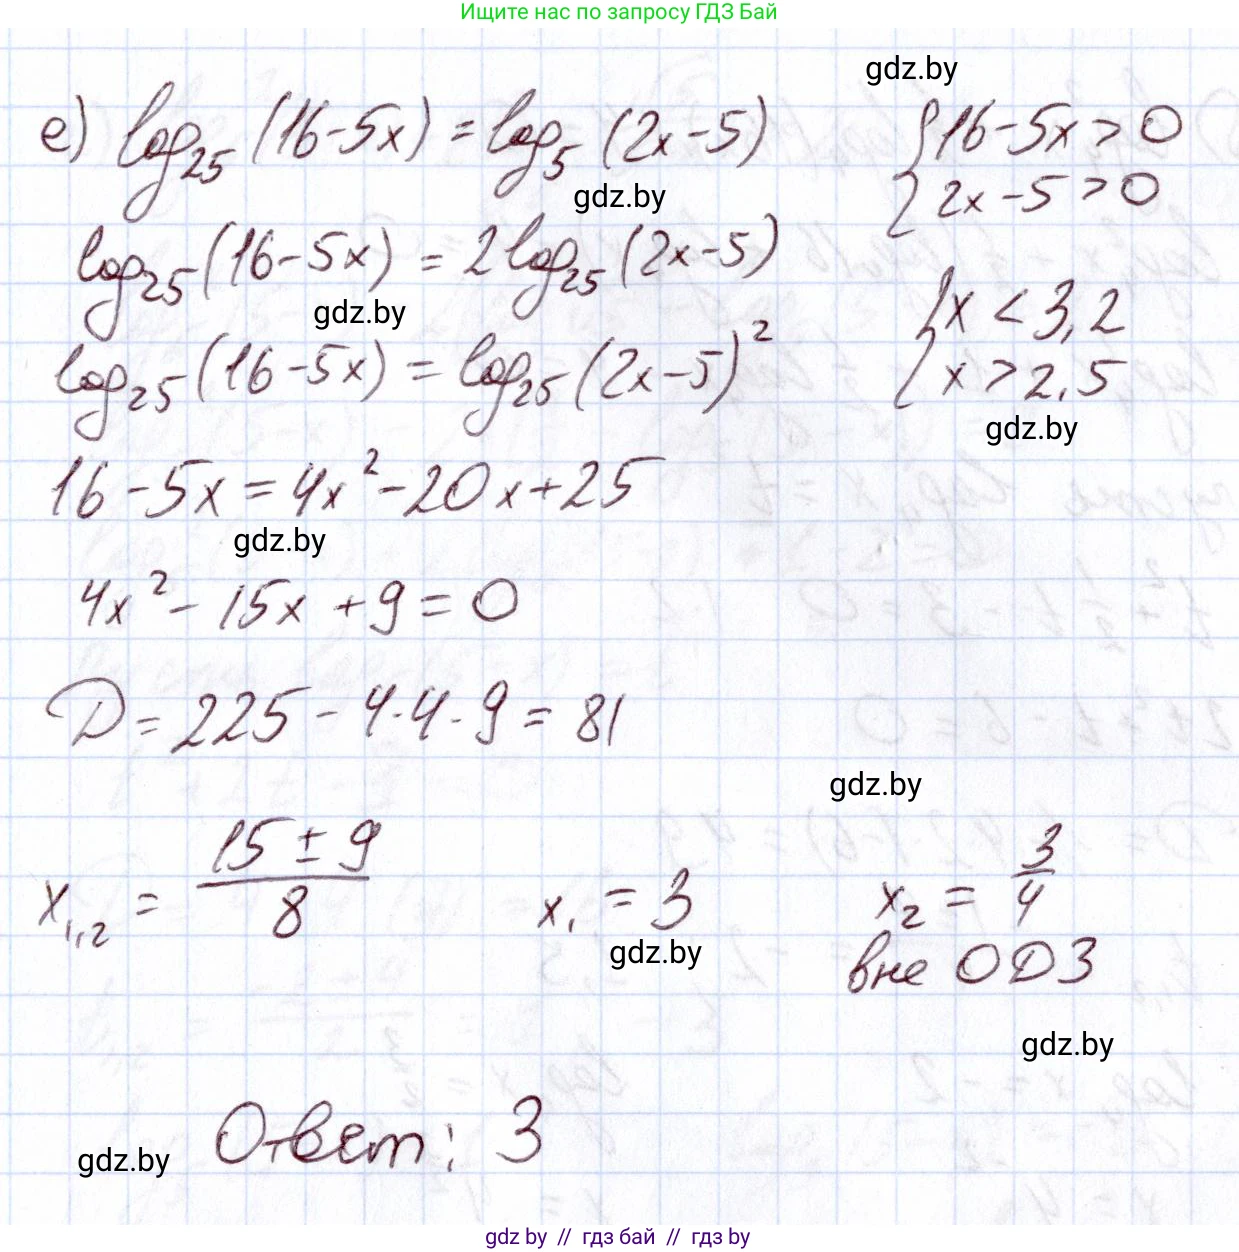 Ищите нас по запросу ГДЗ Бай
gdz.by
е) log₂₅ (16-5x) = log₅ (2x-5)
{16-5x > 0
2x-5 > 0
gdz.by
log₂₅ (16-5x) = 2log₂₅ (2x-5)
gdz.by
{x < 3,2
x > 2,5
log₂₅ (16-5x) = log₂₅ (2x-5)²
gdz.by
16-5x = 4x²-20x+25
gdz.by
4x² - 15x + 9 = 0
D = 225 - 4·4·9 = 81
gdz.by
x₁,₂ = (15 ± 9)/8
x₁ = 3
x₂ = 3/4
gdz.by
вне ОДЗ
gdz.by
Ответ: 3
gdz.by
gdz by // гдз бай // гдз by